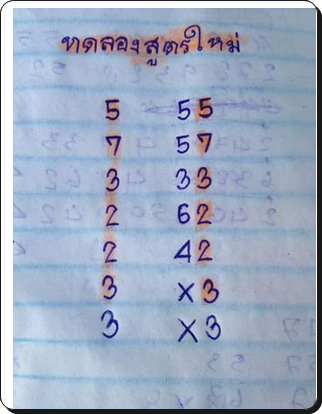 ทดลองสูตรใหม่
5 55
7 57
3 33
2 62
2 42
3 x3
3 x3